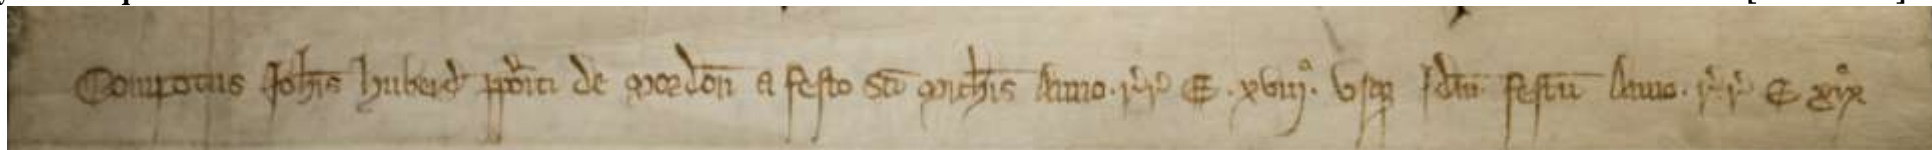 Compotus Joh̄is huberd p̄p̄oiti de mordon̄ a festo Sc̄i Mich̄is Anno . r̓ r̓ . E . xviij° . vsq̨ Idm̄ festū Anno . r̓ r̓ E xix°